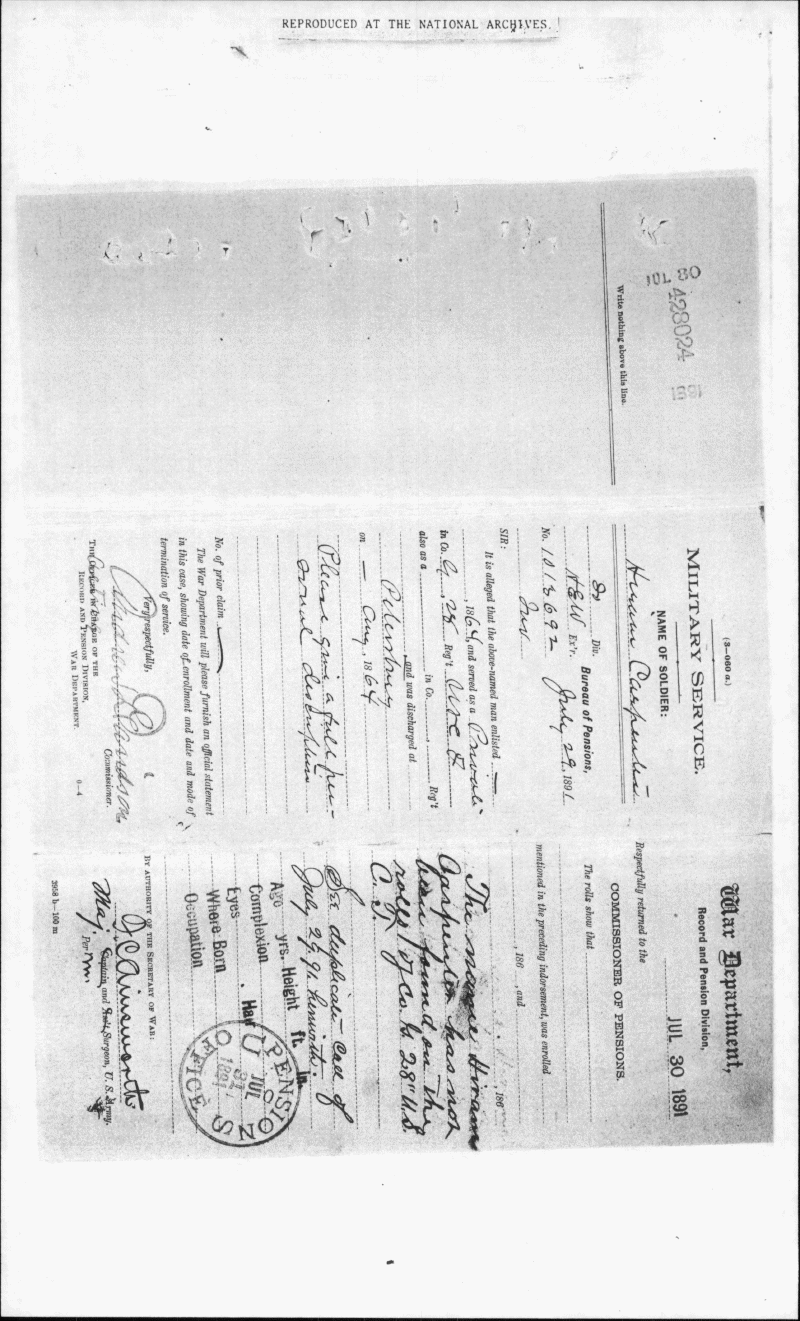 REPRODUCED AT THE NATIONAL ARCHIVES.
JUL 30
428024
1891
Write nothing above this line.
(3—060 a.)
MILITARY SERVICE.
NAME OF SOLDIER:
Hiram Carpenter
Div. Bureau of Pensions,
Ex'r. July 29, 1891.
No. 1013692
SIR:
It is alleged that the above-named man enlisted —
, 1864, and served as a Private
in Co. G, 28 Reg't U S C T
also as a in Co. , Reg't
, and was discharged at
Petersburg
on — Aug, 1864
Please give a full per-
sonal description
No. of prior claim
The War Department will please furnish an official statement
in this case, showing date of enrollment and date and mode of
termination of service.
Very respectfully,
Commissioner.
THE OFFICER IN CHARGE OF THE
RECORD AND PENSION DIVISION,
WAR DEPARTMENT.
6—4
War Department,
Record and Pension Division,
JUL 30 1891
Respectfully returned to the
COMMISSIONER OF PENSIONS.
The rolls show that
mentioned in the preceding indorsement, was enrolled
, 186 , and
, 186
The name Hiram
Carpenter has not
been found on the
rolls of Co. G. 28" U.S.
C. T.
See duplicate call of
July 29, 91 herewith.
Age yrs. Height ft. in.
Complexion
Eyes . Hair
Where Born
Occupation
U S PENSION OFFICE
JUL
31
1891
BY AUTHORITY OF THE SECRETARY OF WAR:
F. C. Ainsworth
Maj. Captain and Ass't Surgeon, U. S. Army.
Per
3958 b—100 m